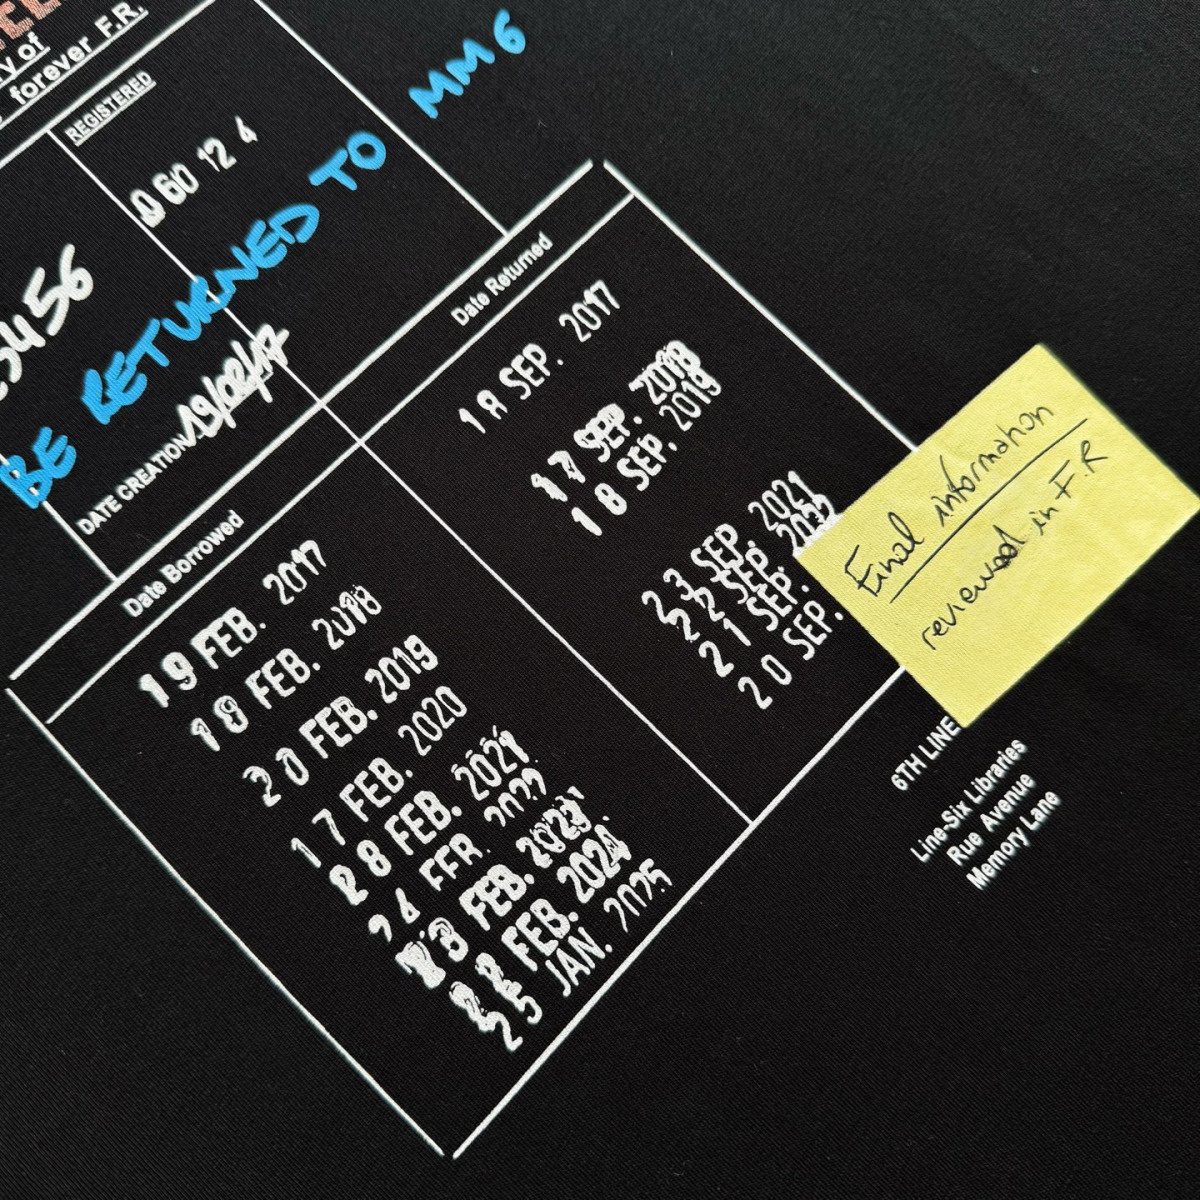 ry of
forever F.R.
REGISTERED
060 12 4
5456
BE RETURNED TO MM6
DATE CREATION 19/02/17
Date Borrowed
Date Returned
19 FEB. 2017
18 FEB. 2018
20 FEB. 2019
17 FEB. 2020
28 FEB. 2021
24 FEB. 2022
23 FEB. 2023
22 FEB. 2024
25 JAN. 2025
18 SEP. 2017
17 SEP. 2018
18 SEP. 2019
23 SEP. 2021
22 SEP. 2022
21 SEP.
20 SEP.
Final information
reviewed in F.R
6TH LINE
Line-Six Libraries
Rue Avenue
Memory Lane